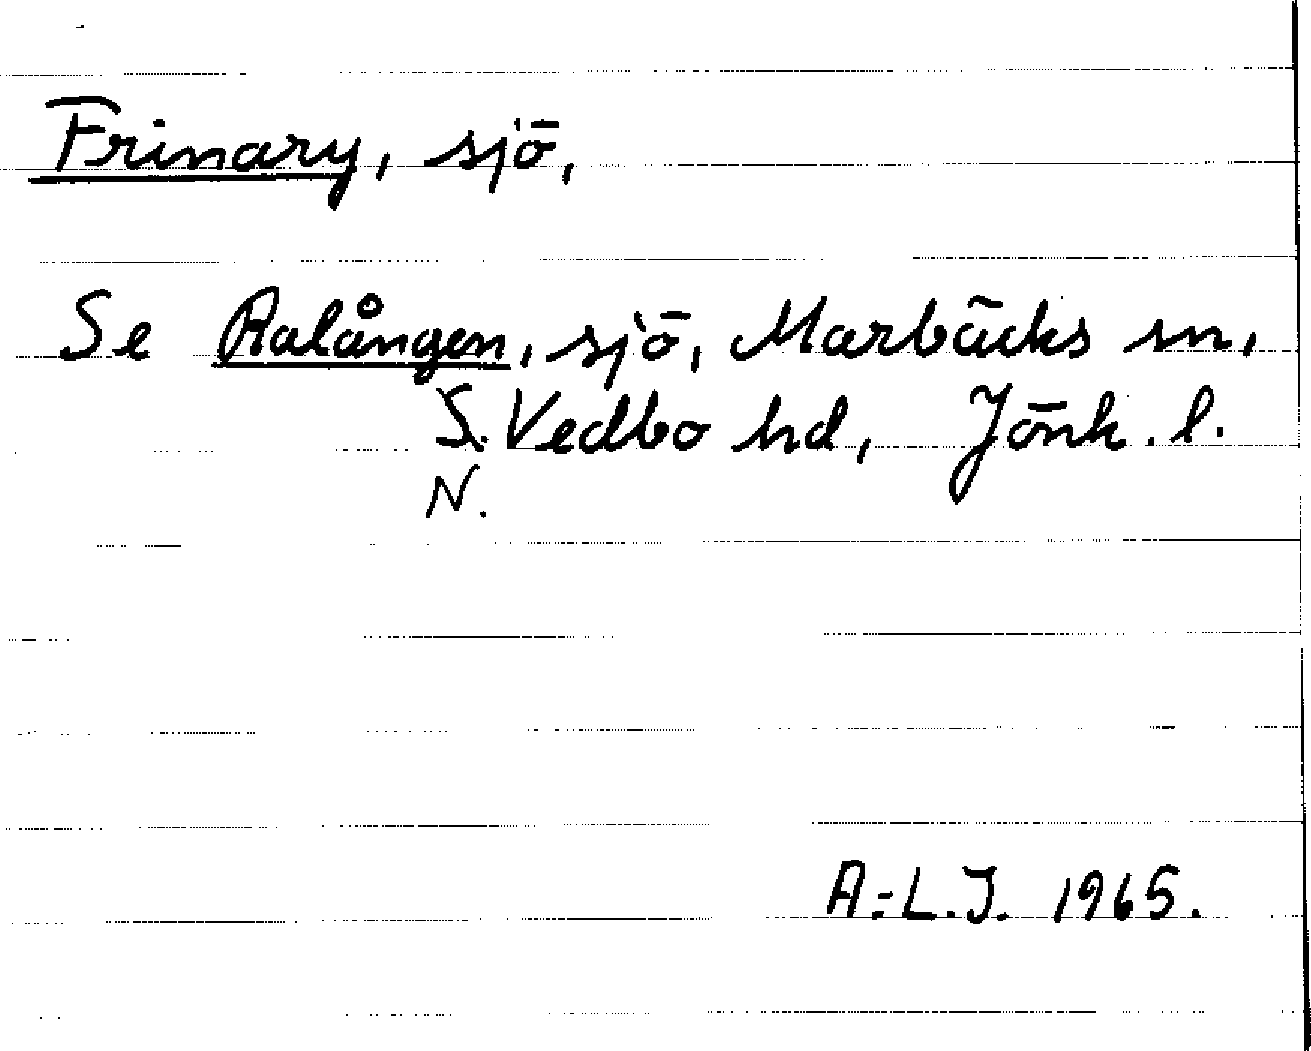 Frinary, sjö,
Se Ralången, sjö, Marbäcks sn,
S. Vedbo hd, Jönk. l.
N.
A.-L.J. 1965.